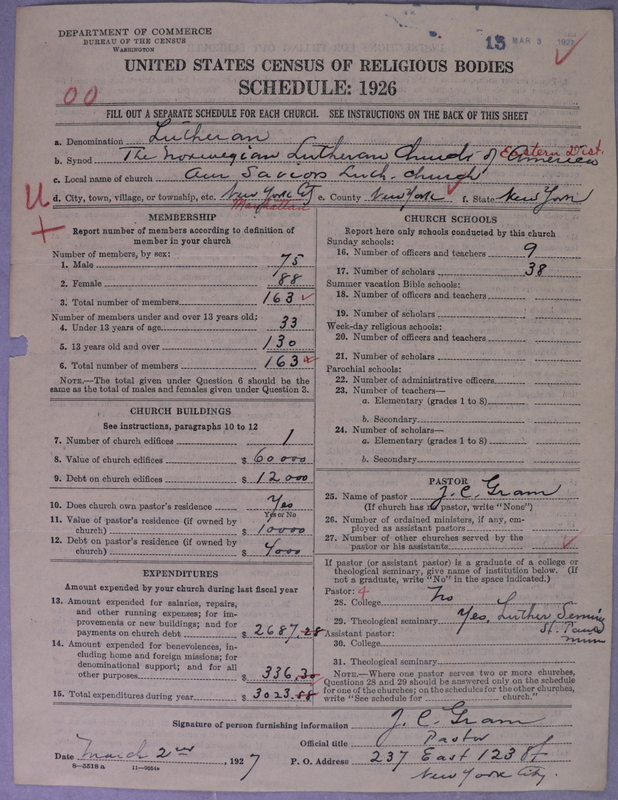 DEPARTMENT OF COMMERCE
BUREAU OF THE CENSUS
WASHINGTON
15 MAR 3 1927
UNITED STATES CENSUS OF RELIGIOUS BODIES
SCHEDULE: 1926
00
FILL OUT A SEPARATE SCHEDULE FOR EACH CHURCH. SEE INSTRUCTIONS ON THE BACK OF THIS SHEET
a. Denomination Lutheran
b. Synod The Norwegian Lutheran Church of America Eastern Dist.
c. Local name of church Our Saviors Luth. Church
d. City, town, village, or township, etc. New York City e. County New York f. State New York
Manhattan
U
MEMBERSHIP
Report number of members according to definition of
member in your church
Number of members, by sex:
1. Male 75
2. Female 88
3. Total number of members 163
Number of members under and over 13 years old:
4. Under 13 years of age 33
5. 13 years old and over 130
6. Total number of members 163
NOTE.—The total given under Question 6 should be the
same as the total of males and females given under Question 3.
CHURCH BUILDINGS
See instructions, paragraphs 10 to 12
7. Number of church edifices 1
8. Value of church edifices $ 60000
9. Debt on church edifices $ 12000
10. Does church own pastor's residence Yes
Yes or No
11. Value of pastor's residence (if owned by
church) $ 10000
12. Debt on pastor's residence (if owned by
church) $ 4000
EXPENDITURES
Amount expended by your church during last fiscal year
13. Amount expended for salaries, repairs,
and other running expenses; for im-
provements or new buildings; and for
payments on church debt $ 2687.28
14. Amount expended for benevolences, in-
cluding home and foreign missions; for
denominational support; and for all
other purposes $ 336.30
15. Total expenditures during year $ 3023.58
CHURCH SCHOOLS
Report here only schools conducted by this church
Sunday schools:
16. Number of officers and teachers 9
17. Number of scholars 38
Summer vacation Bible schools:
18. Number of officers and teachers
19. Number of scholars
Week-day religious schools:
20. Number of officers and teachers
21. Number of scholars
Parochial schools:
22. Number of administrative officers
23. Number of teachers—
a. Elementary (grades 1 to 8)
b. Secondary
24. Number of scholars—
a. Elementary (grades 1 to 8)
b. Secondary
PASTOR
25. Name of pastor J. C. Gram
(If church has no pastor, write "None")
26. Number of ordained ministers, if any, em-
ployed as assistant pastors
27. Number of other churches served by the
pastor or his assistants
If pastor (or assistant pastor) is a graduate of a college or
theological seminary, give name of institution below. (If
not a graduate, write "No" in the space indicated.)
Pastor: 4
28. College No
29. Theological seminary Yes, Luther Semin
St. Paul
Minn
Assistant pastor:
30. College
31. Theological seminary
NOTE.—Where one pastor serves two or more churches,
Questions 28 and 29 should be answered only on the schedule
for one of the churches; on the schedules for the other churches,
write "See schedule for church."
Signature of person furnishing information J. C. Gram
Official title Pastor
Date March 2nd, 1927 P. O. Address 237 East 123 St
New York City.
8—5518 a